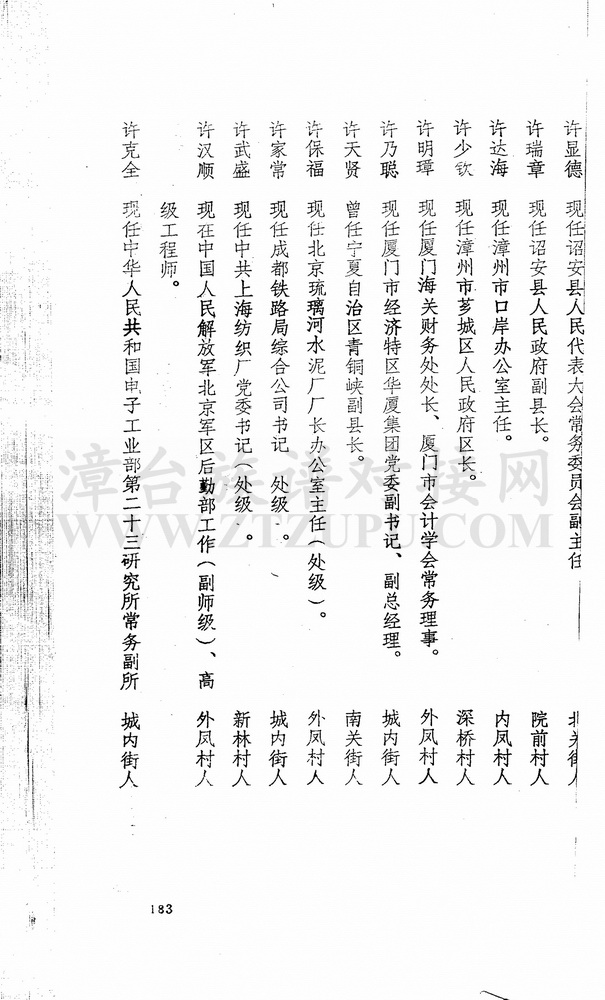 许显德 现任诏安县人民代表大会常务委员会副主任 北关街人
许瑞章 现任诏安县人民政府副县长。 院前村人
许达海 现任漳州市口岸办公室主任。 内凤村人
许少钦 现任漳州市芗城区人民政府区长。 深桥村人
许明璋 现任厦门海关财务处处长、厦门市会计学会常务理事。 外凤村人
许乃聪 现任厦门市经济特区华厦集团党委副书记、副总经理。 城内街人
许天贤 曾任宁夏自治区青铜峡副县长。 南关街人
许保福 现任北京琉璃河水泥厂厂长办公室主任（处级）。 外凤村人
许家常 现任成都铁路局综合公司书记 处级 。 城内街人
许武盛 现任中共上海纺织厂党委书记（处级 。 新林村人
许汉顺 现在中国人民解放军北京军区后勤部工作（副师级）、高 外凤村人
级工程师。
许克全 现任中华人民共和国电子工业部第二十三研究所常务副所 城内街人
183
漳台族谱对接网
WWW.ZTZUPU.COM